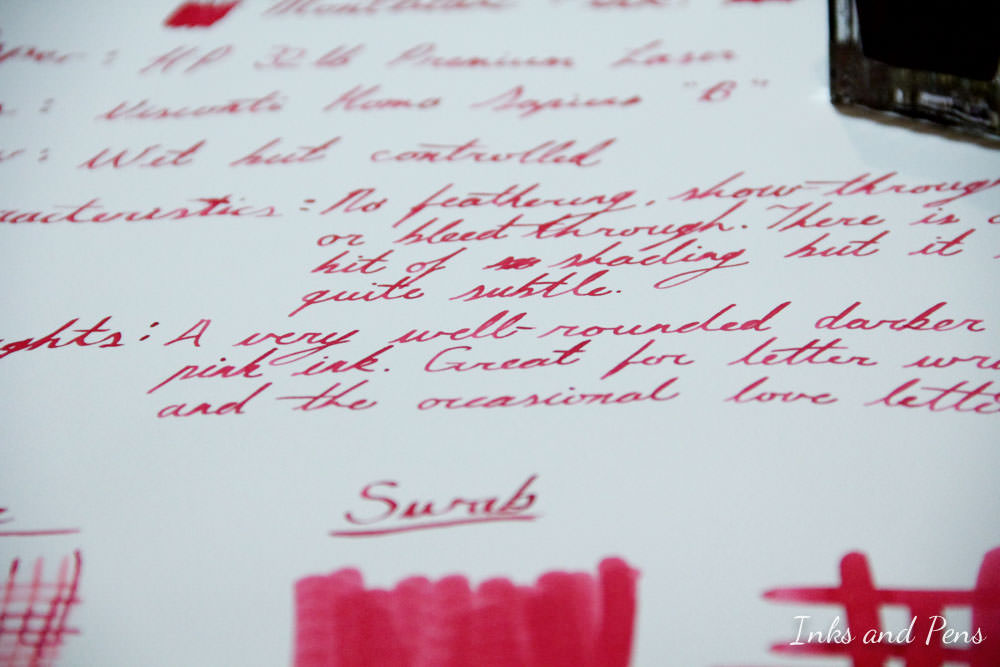 : HP 32 lb Premium Laser
: Visconti Homo Sapiens "B"
: Wet but controlled
racteristics : No feathering, show-through
or bleedthrough. There is a
bit of shading but it
quite subtle.
ghts : A very well-rounded darker
pink ink. Great for letter wri
and the occasional love lette
Swab
Inks and Pens